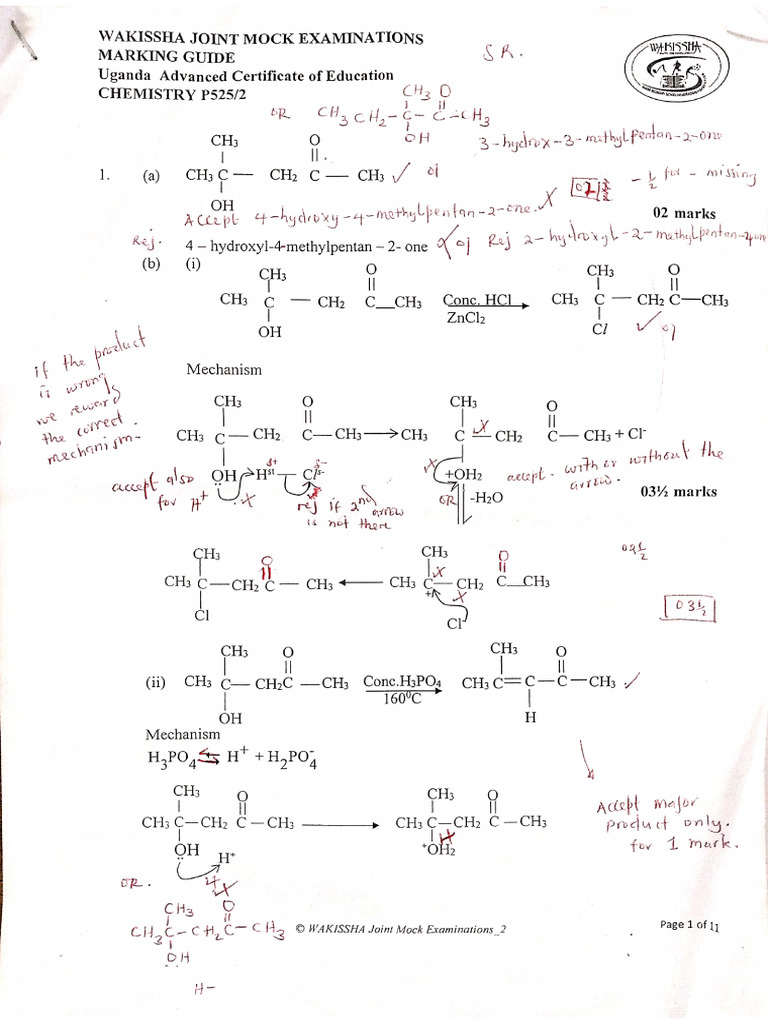 WAKISSHA JOINT MOCK EXAMINATIONS
MARKING GUIDE
Uganda Advanced Certificate of Education
CHEMISTRY P525/2
S R.
WAKISSHA
OR CH3 CH2 – C – C – CH3
CH3 O
OH
3-hydrox-3-methylpentan-2-one
CH3 O
1. (a) CH3 C — CH2 C — CH3 ✓ 01
OH
02 – ½ for - missing
02 marks
Accept 4-hydroxy-4-methylpentan-2-one. X
Rej. 4 – hydroxyl-4-methylpentan – 2- one 01 Rej 2-hydroxyl-2-methylpentan-4one
(b) (i)
CH3 O CH3 O
CH3 C — CH2 C__CH3 Conc. HCl CH3 C — CH2 C—CH3
ZnCl2
OH Cl ✓ 01
if the product
is wrong
we reward
the correct
mechanism-
Mechanism
CH3 O CH3 O
CH3 C — CH2 C —CH3 CH3 C — CH2 C— CH3 + Cl-
OH H C +OH2
accept also
for H+
rej if 2nd arrow
is not there
accept. with or without the
arrow.
OR -H2O
03½ marks
CH3 O CH3 O
CH3 C — CH2 C — CH3 CH3 C — CH2 C__CH3
Cl + Cl
02½
03½
CH3 O CH3 O
(ii) CH3 C— CH2C —CH3 Conc.H3PO4 CH3 C = C — C — CH3 ✓
160⁰C
OH H
Mechanism
H3PO4 ⇌ H+ + H2PO4-
CH3 O CH3 O
CH3 C—CH2 C —CH3 CH3 C—CH2 C — CH3
OH H+ +OH2
Accept major
product only.
for 1 mark.
OR.
CH3 O
CH3 C – CH2 C – CH3
OH
H–
© WAKISSHA Joint Mock Examinations_2
Page 1 of 11